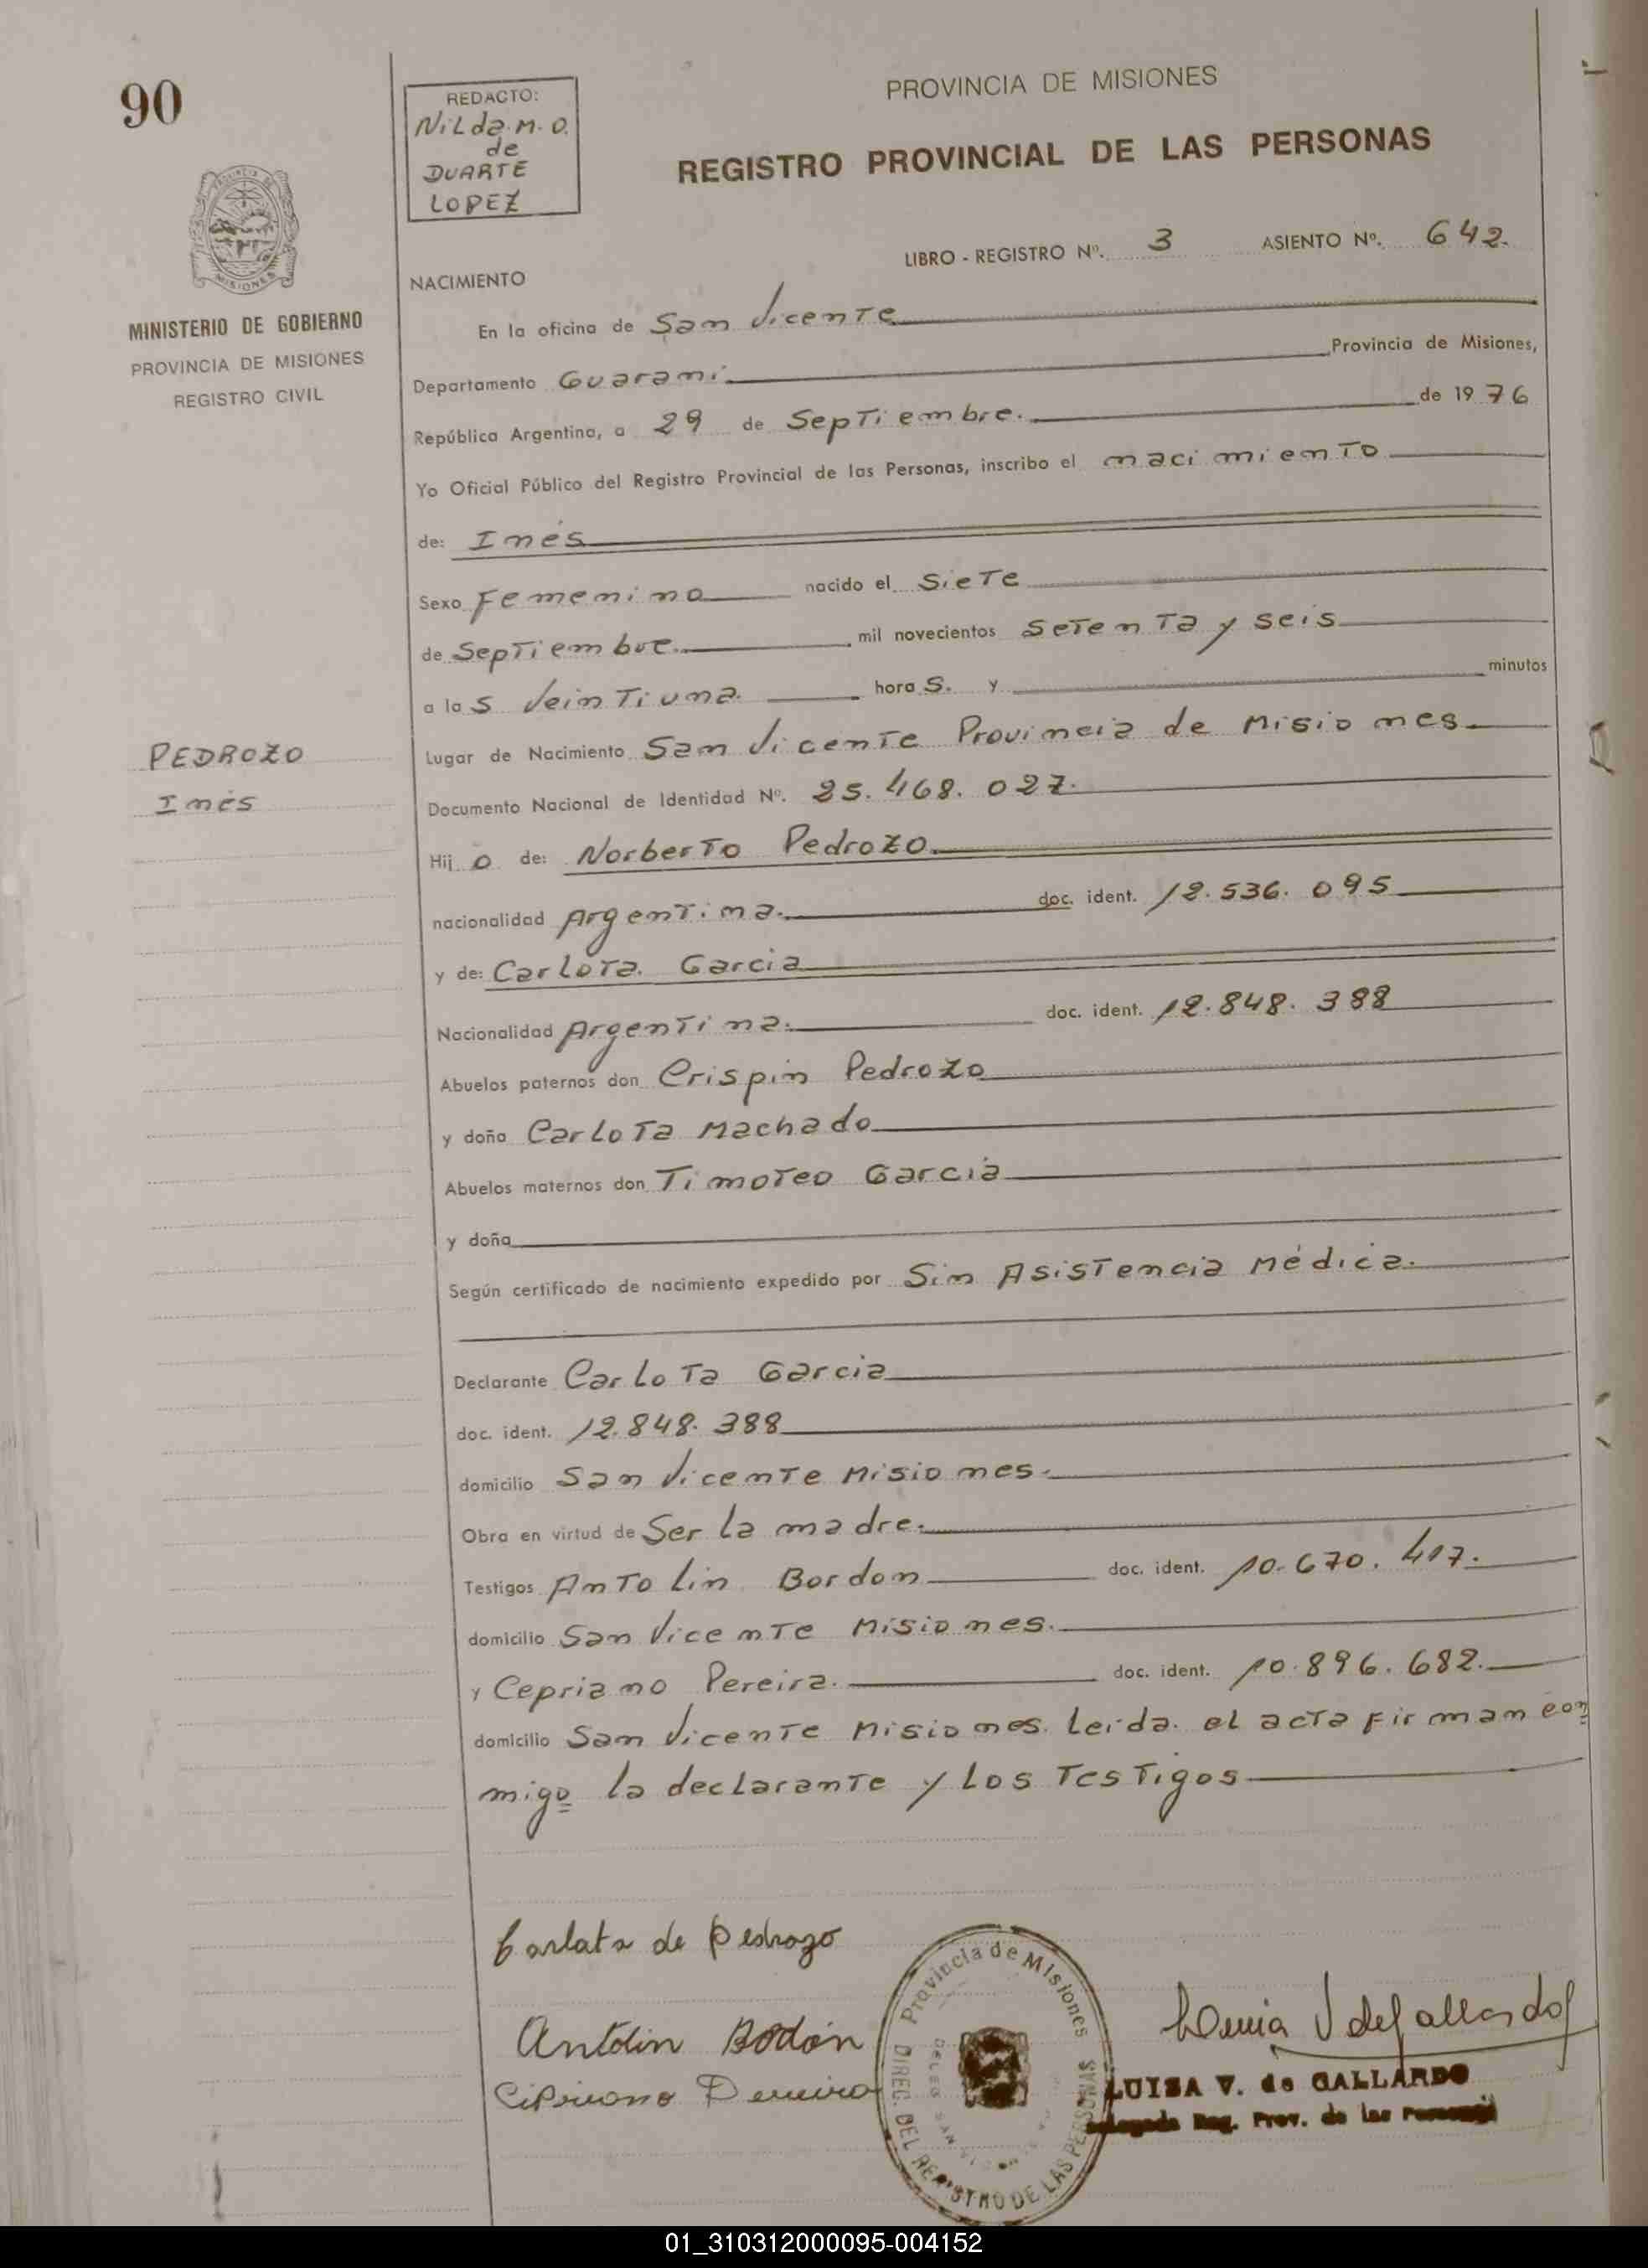 90
REDACTO:
Nilda. M. O.
de
DUARTE
LOPEZ
PROVINCIA DE MISIONES
REGISTRO PROVINCIAL DE LAS PERSONAS
LIBRO - REGISTRO Nº. 3 ASIENTO Nº. 642.
MISIONES
MINISTERIO DE GOBIERNO
PROVINCIA DE MISIONES
REGISTRO CIVIL
NACIMIENTO
En la oficina de San Vicente
Departamento Guarami. Provincia de Misiones,
República Argentina, a 29 de Septiembre. de 1976
Yo Oficial Público del Registro Provincial de las Personas, inscribo el nacimiento
de: Inés
Sexo Femenino nacido el Siete
de Septiembre. mil novecientos Setenta y seis
a las Veintiuna. horas. y minutos
Lugar de Nacimiento San Vicente Provincia de Misiones
PEDROZO
Inés
Documento Nacional de Identidad Nº. 25.468.027.
Hijo de: Norberto Pedrozo.
nacionalidad Argentina. doc. ident. 12.536.095
y de: Carlota. Garcia
Nacionalidad Argentina. doc. ident. 12.848.388
Abuelos paternos don Crispin Pedrozo
y doña Carlota Machado
Abuelos maternos don Timoteo Garcia
y doña
Según certificado de nacimiento expedido por Sin Asistencia Médica.
Declarante Carlota Garcia
doc. ident. 12.848.388
domicilio San Vicente Misiones.
Obra en virtud de Ser la madre.
Testigos Antolin Bordon doc. ident. 10.670.417.
domicilio San Vicente Misiones.
y Cepriano Pereira. doc. ident. 10.896.682.
domicilio San Vicente Misiones. Leida. el acta firman con
migo la declarante y los testigos
Carlata de Pedrozo
Antolin Bodón
Cipriano Pereira
Provincia de Misiones
DIREC. DEL REGISTRO DE LAS PERSONAS
LUISA V. de GALLARDO
Reg. Prov. de las
01_310312000095-004152